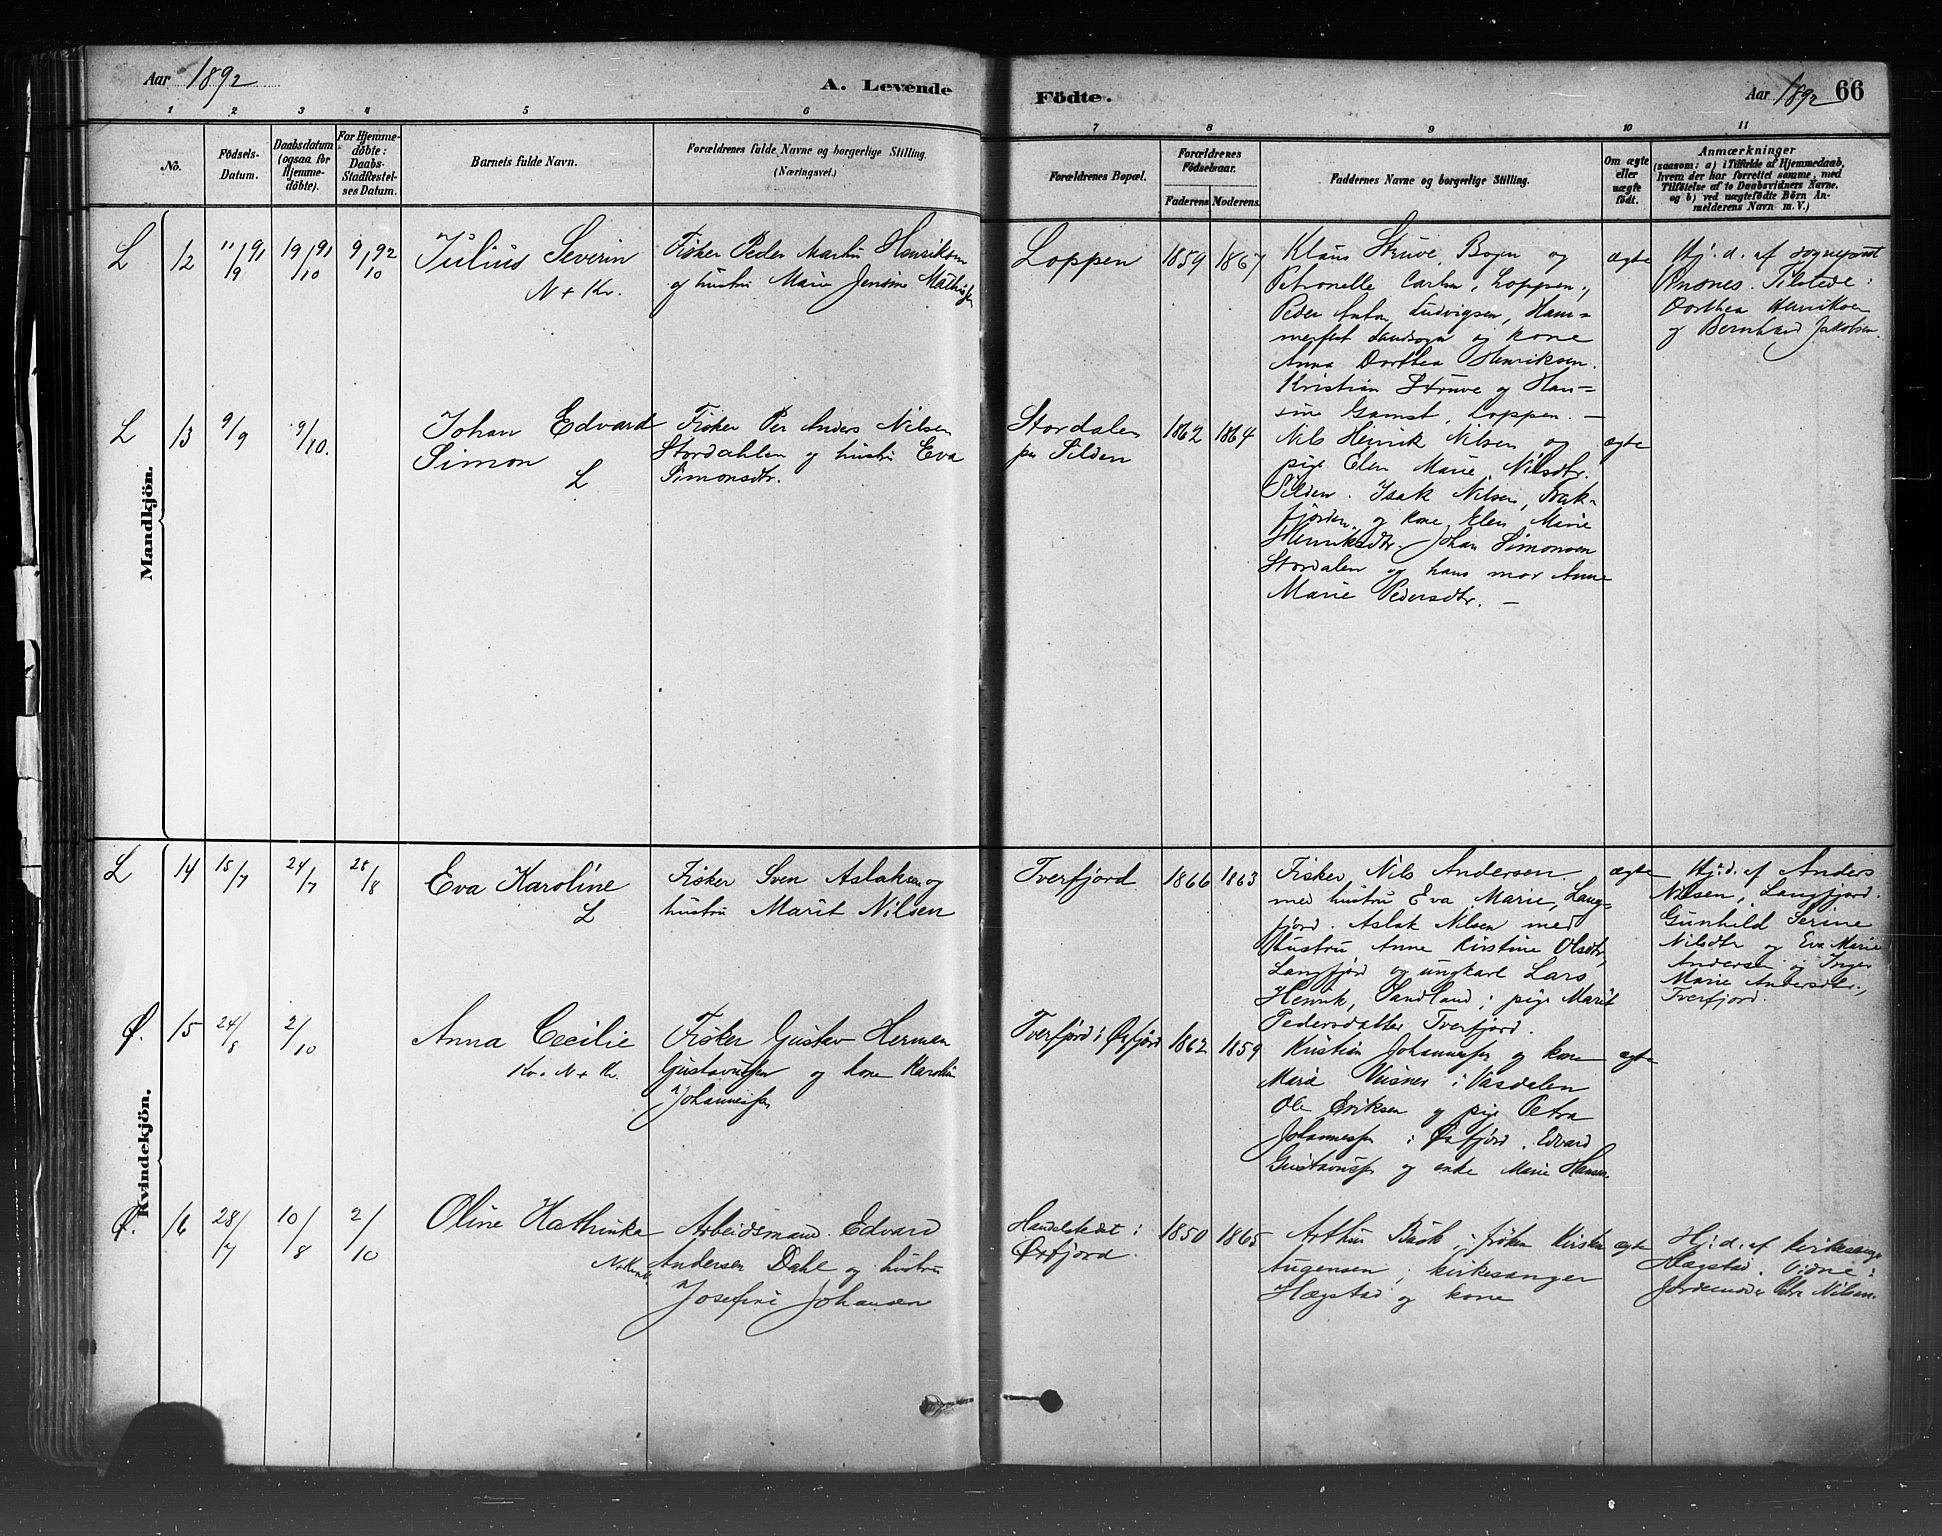 Aar 1892
A. Levende
Födte.
Aar 1892 66
1 2 3 4 5 6 7 8 9 10 11
No.
Födsels-
Datum.
Daabsdatum
(ogsaa for
Hjemme-
döbte).
For Hjemme-
döbte:
Daabs-
Stadfæstel-
ses Datum.
Barnets fulde Navn.
Forældrenes fulde Navne og borgerlige Stilling.
(Næringsvei.)
Forældrenes Bopæl.
Forældrenes
Födselsaar.
Faderens Moderens.
Faddernes Navne og borgerlige Stilling.
Om ægte
eller
uægte
födt.
Anmærkninger
(saasom: a) i Tilfælde af Hjemmedaab,
hvem der har forrettet samme, med
Tilföielse af to Daabsvidners Navne.
og b) ved uægtefödte Börn An-
melderens Navn m. V.)
Mandkjön.
L 12 11/9 91 19/10 91 9/10 92
Julius Severin
N + Kv.
Fisker Peder Martin Henriksen
og hustru Marie Jensine Mathisen
Loppen
1859 1867
Klaus Struve, Bogen og
Petronelle Carlsen, Loppen;
Peder Anton Ludvigsen, Ham-
merfest Landsogn og kone
Anna Dorthea Henriksen.
Kristian Struve og Han-
sine Gamst, Loppen. —
ægte
Hj: d. af sogneprest
Ansnes. Tilstede:
Dorthea Henriksen
og Bernhard Jakobsen
L 13 9/9 9/10.
Johan Edvard
Simon
L
Fisker Per Anders Nilsen
Stordahlen og hustru Eva
Simonsdtr.
Stordalen
pr Silden
1862 1864
Nils Henrik Nilsen og
pige Elen Marie Nilsdtr.
Silden. Isak Nilsen, Frak-
fjorden og kone Elen Marie
Henriksdtr. Johan Simonsen
Stordalen og hans mor Anne
Marie Pedersdtr. —
ægte
Kvindekjön.
L 14 15/7 24/7 28/8
Eva Karoline
L
Fisker Sven Aslaksen og
hustru Marit Nilsen
Tverfjord
1866 1863
Fisker Nils Andersen
med hustru Eva Marie, Lang-
fjord. Aslak Nilsen med
hustru Anne Kirstine Olsdtr,
Langfjord og ungkarl Lars
Henrik, Sandland; pige Marit
Pedersdatter Tverfjord.
ægte
Hj: d. af Anders
Nilsen, Langfjord.
Gunhild Serine
Nilsdtr og Eva Marie
Andersen og Inger
Marie Andersdtr.,
Tverfjord.
Ø. 15 24/8 2/10
Anna Cecilie
Kv. N + Kv.
Fisker Gustav Herman
Gustavusen og kone Karolin
Johannessen
Tverfjord i Øxfjord
1862 1859
Kristian Johannessen og kone
Maria i Vasdalen
Ole Eriksen og pige Petra
Johannessen i Øxfjord. Edvard
Gustavussen og enke Marie Hansen
ægte
Ø. 16 28/7 10/8 2/10
Oline Kathinka
Arbeidsmand Edvard
Andersen Dahl og hustru
Josefine Johansen
Handelstedet i
Øxfjord.
1850 1865
Arthur Buck; frøken Kirsten
Augensen; kirkesanger
Hægstad og kone
ægte
Hj: d. af kirkesanger
Hægstad. Vidne:
Jordemoder Petra Nilsen.